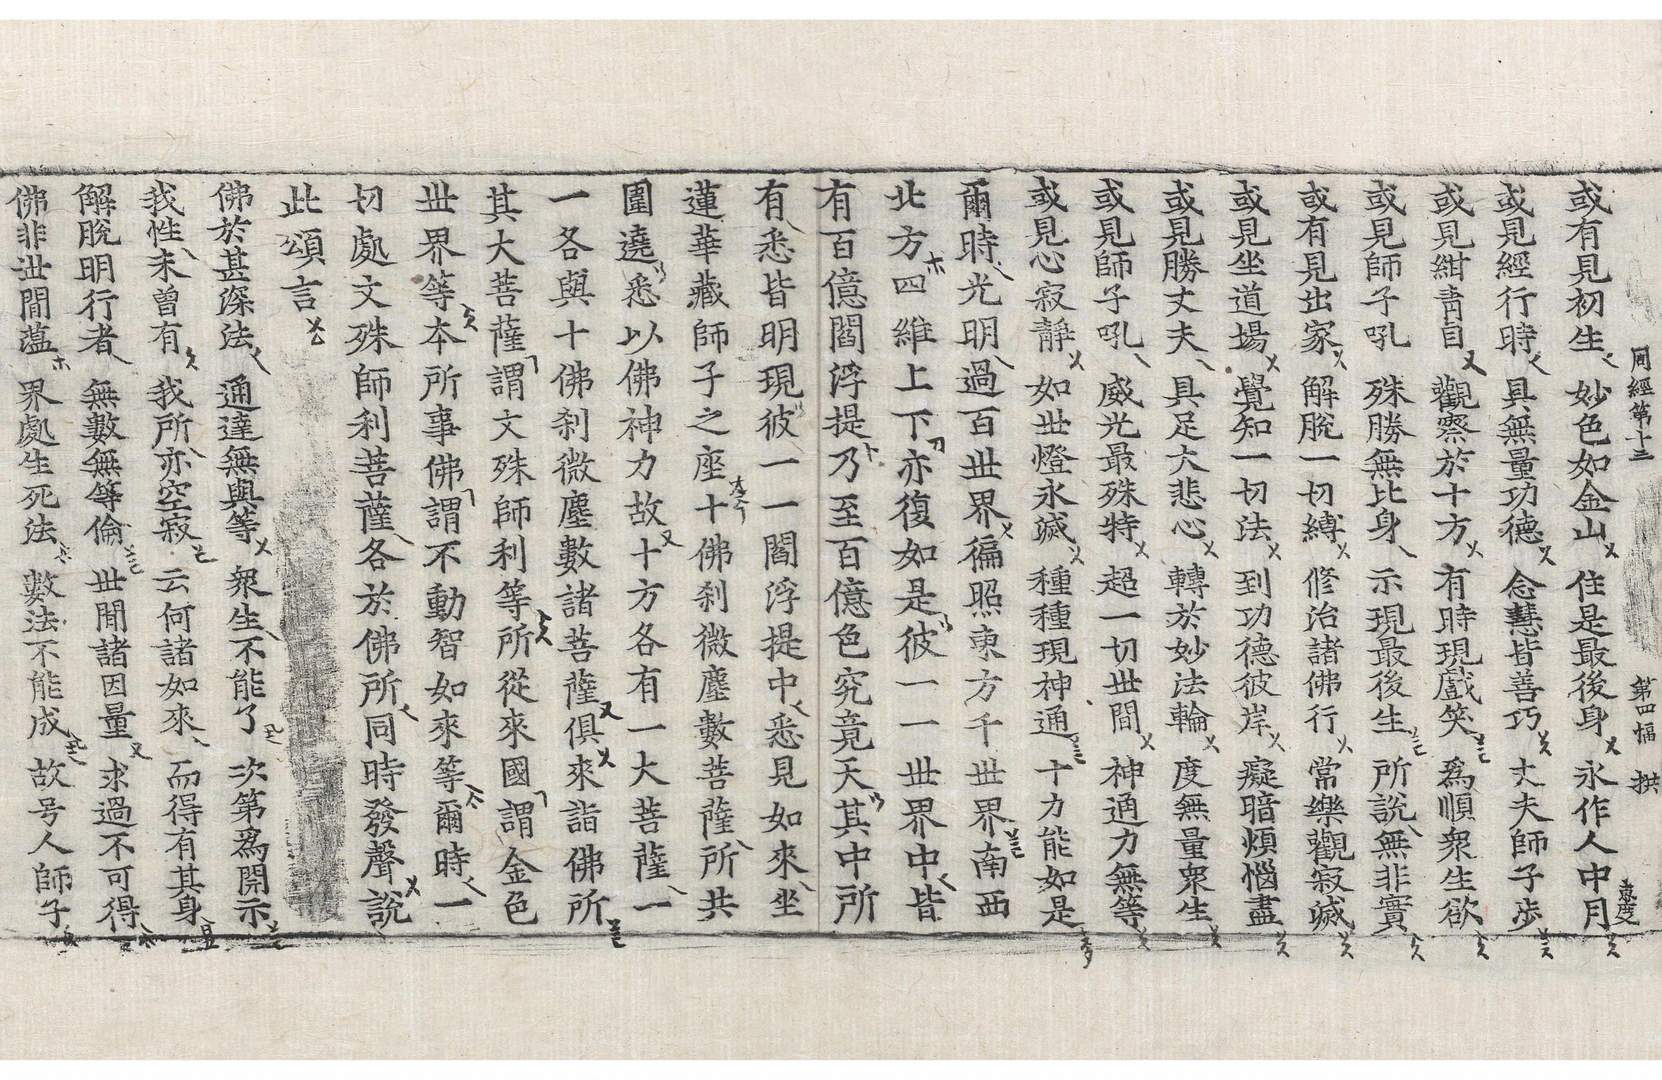 周經第十三 第四幅 拱 惠度
或有見初生 妙色如金山 住是最後身 永作人中月
或見經行時 具無量功德 念慧皆善巧 丈夫師子步
或見紺靑目 觀察於十方 有時現戲笑 爲順衆生欲
或見師子吼 殊勝無比身 示現最後生 所說無非實
或有見出家 解脫一切縛 修治諸佛行 常樂觀寂滅
或見坐道場 覺知一切法 到功德彼岸 癡暗煩惱盡
或見勝丈夫 具足大悲心 轉於妙法輪 度無量衆生
或見師子吼 威光最殊特 超一切世間 神通力無等
或見心寂靜 如世燈永滅 種種現神通 十力能如是
爾時光明過百世界徧照東方千世界南西
北方四維上下亦復如是彼一一世界中皆
有百億閻浮提乃至百億色究竟天其中所
有悉皆明現彼一一閻浮提中悉見如來坐
蓮華藏師子之座十佛刹微塵數菩薩所共
圍遶悉以佛神力故十方各有一大菩薩一
一各與十佛刹微塵數諸菩薩俱來詣佛所
其大菩薩謂文殊師利等所從來國謂金色
世界等本所事佛謂不動智如來等爾時一
切處文殊師利菩薩各於佛所同時發聲說
此頌言
佛於甚深法 通達無與等 衆生不能了 次第爲開示
我性未曾有 我所亦空寂 云何諸如來 而得有其身
解脫明行者 無數無等倫 世間諸因量 求過不可得
佛非世間蘊 界處生死法 數法不能成 故号人師子